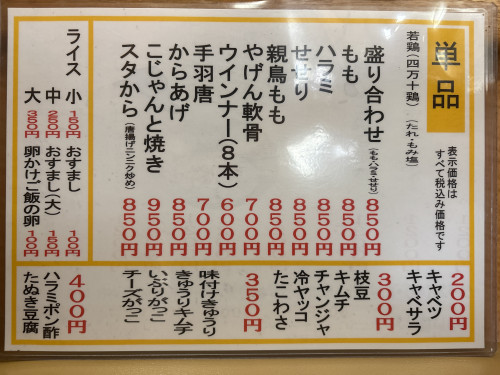 単品
表示価格は
すべて税込み価格です
若鶏(四万十鶏) (たれ・もみ塩)
盛り合わせ(もも・ハラミ・せせり) 850円
もも 850円
ハラミ 850円
せせり 850円
親鳥もも 850円
やげん軟骨 700円
ウインナー(8本) 600円
手羽唐 700円
からあげ 850円
こじゃんと焼き 950円
スタから(唐揚げニンニク炒め) 850円
ライス 小 150円
中 250円
大 350円
おすまし 100円
おすまし(大) 150円
卵かけご飯の卵 100円
200円
キャベツ
キャベサラ
300円
枝豆
キムチ
チャンジャ
冷ヤッコ
たこわさ
350円
味付けきゅうり
きゅうりキムチ
いぶりがっこ
チーズがっこ
400円
ハラミポン酢
たぬき豆腐